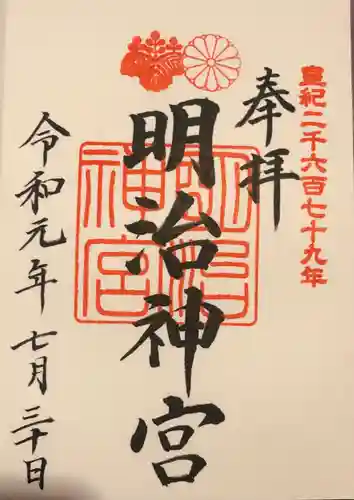 皇紀二千六百七十九年
奉拝
明治神宮
明治神宮
令和元年七月三十日